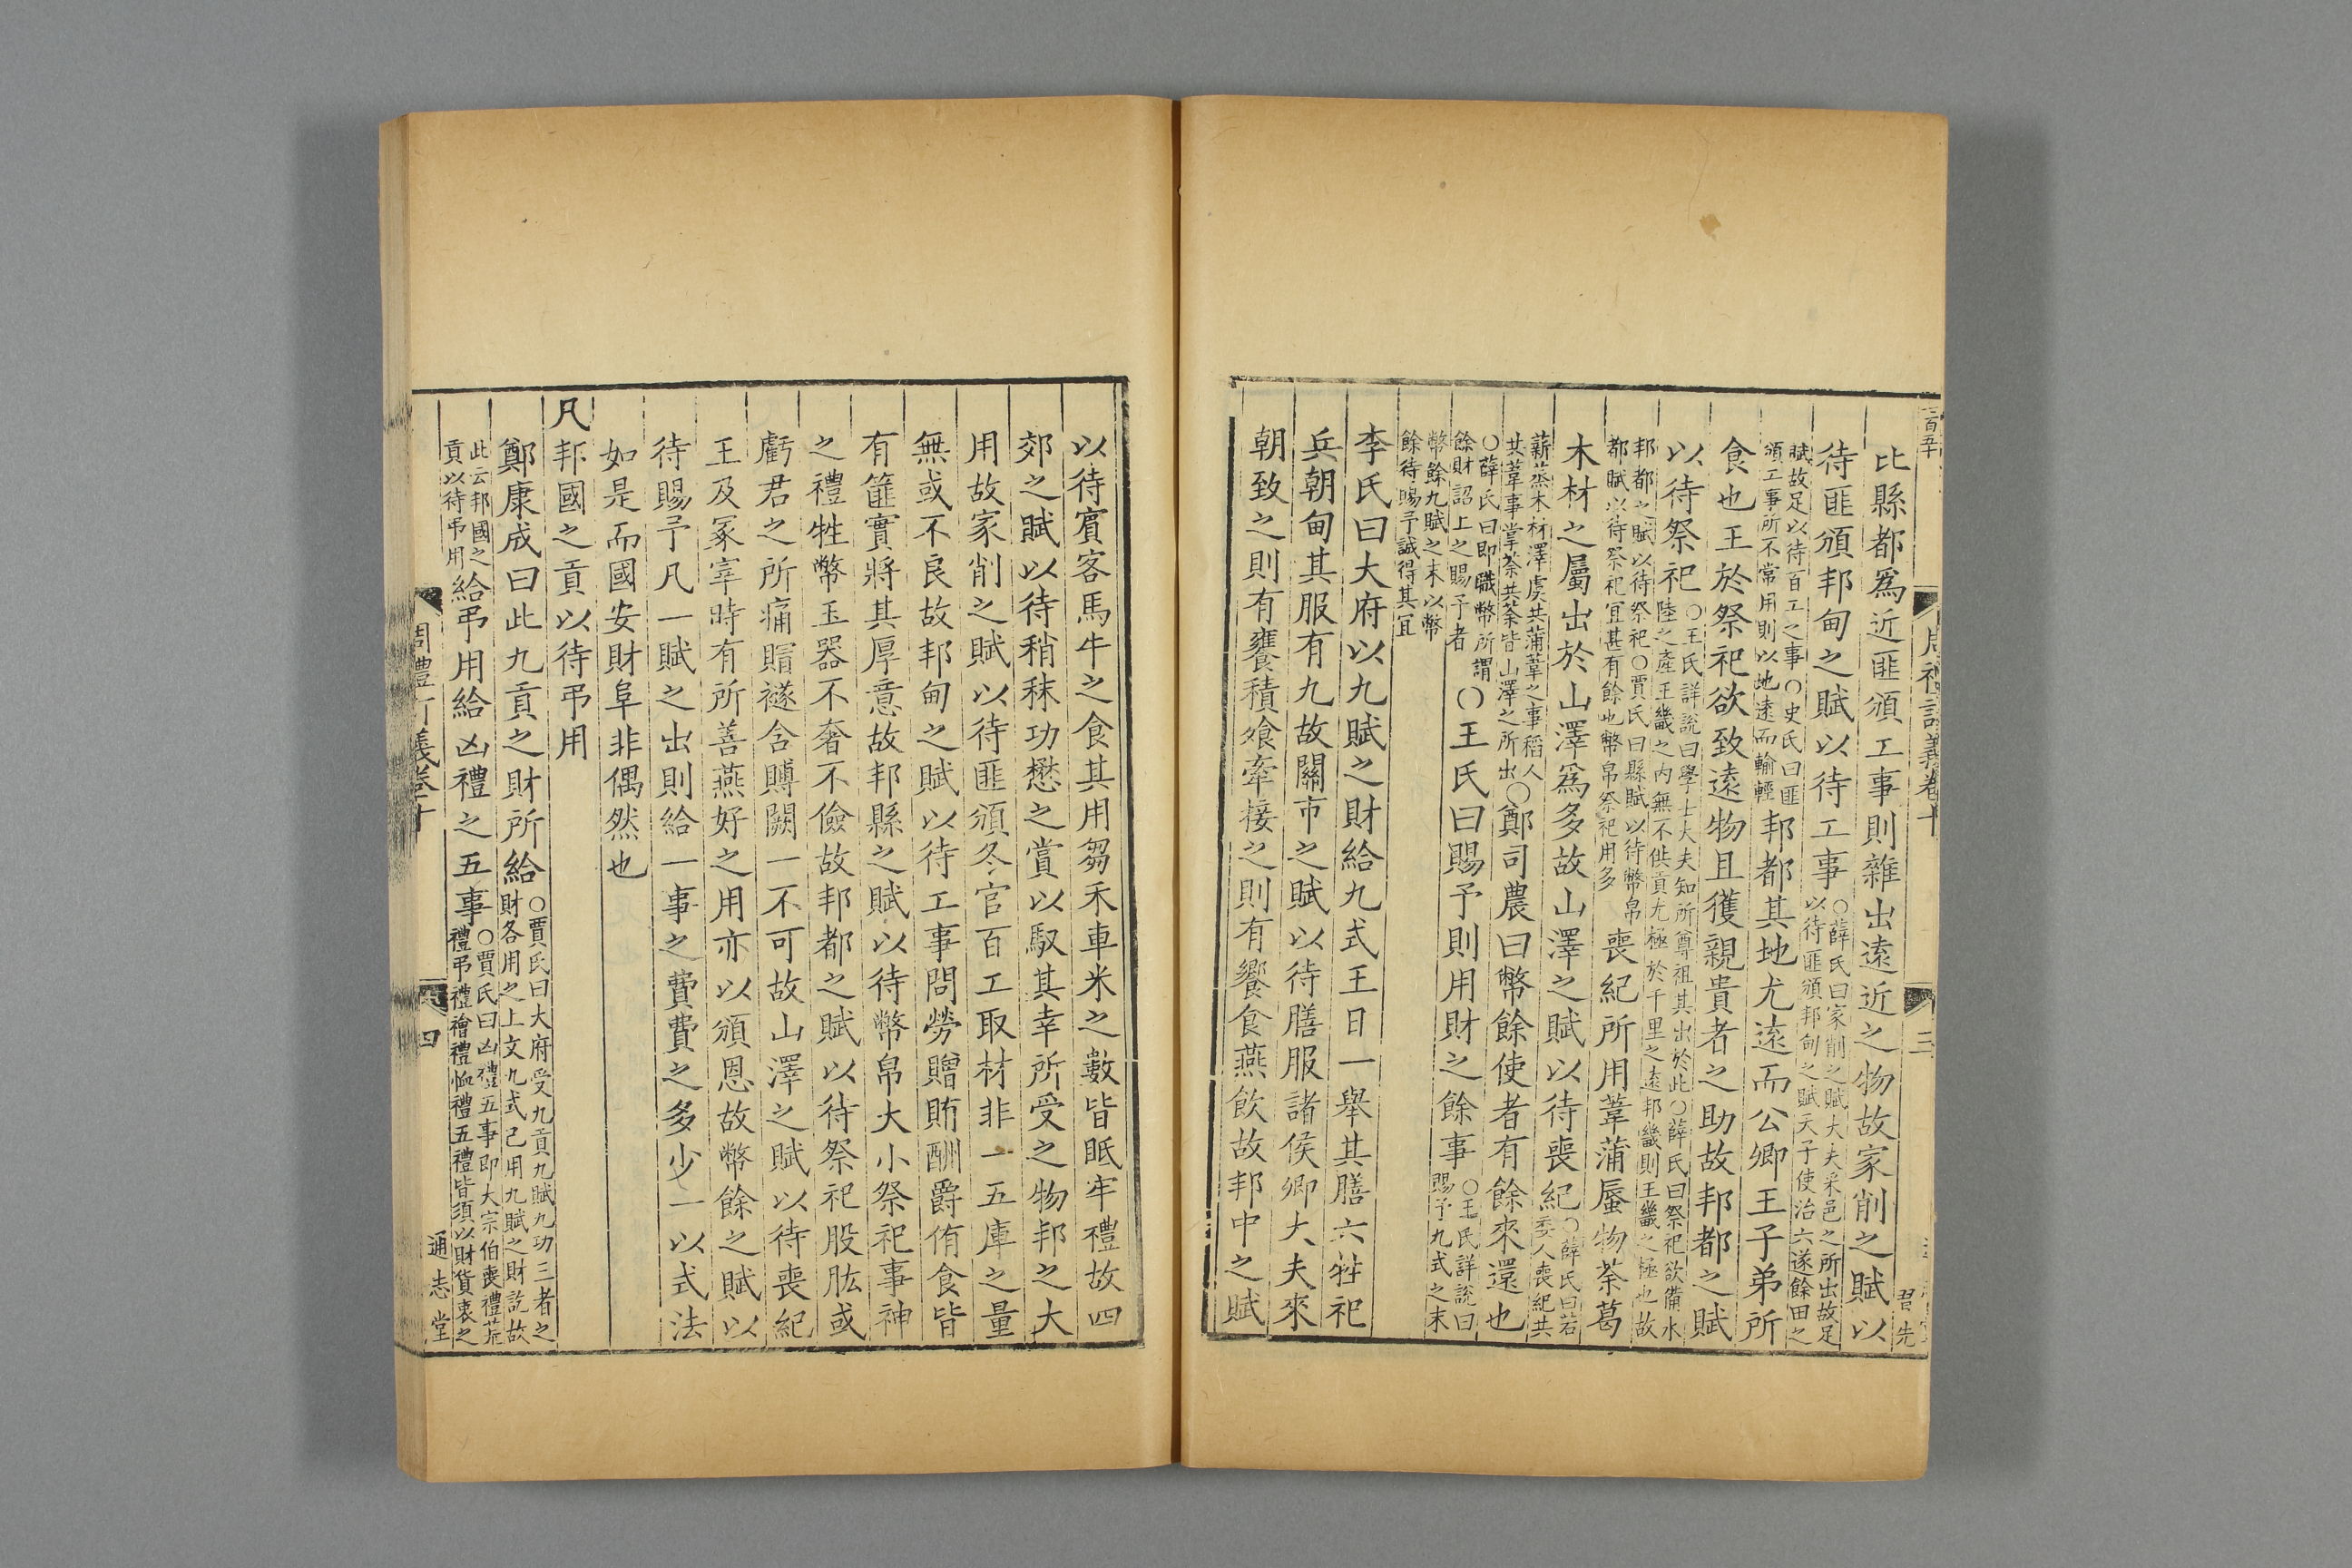 比縣都爲近匪頒工事則雜出遠近之物故家削之賦以
待匪頒邦甸之賦以待工事○薛氏曰家削之賦大夫采邑之所出故足以待匪頒邦甸之賦天子使治六遂餘田之
賦故足以待百工之事○史氏曰匪頒工事所不常用則以地遠而輸輕邦都其地尤遠而公卿王子弟所
食也王於祭祀欲致遠物且獲親貴者之助故邦都之賦
以待祭祀○王氏詳說曰學士大夫知所尊祖其出於此○薛氏曰祭祀欲備水陸之產王畿之內無不供貢尤極於千里之遠邦畿則王畿之極也故
邦都之賦以待祭祀○賈氏曰縣賦以待幣帛都賦以待祭祀宜甚有餘也幣帛祭祀用多喪紀所用葦蒲蜃物荼葛
木材之屬出於山澤爲多故山澤之賦以待喪紀○薛氏曰若委人喪紀共
薪蒸木材澤虞共蒲葦之事稻人共葦事掌荼共荼皆山澤之所出○鄭司農曰幣餘使者有餘來還也
○薛氏曰即職幣所謂餘財詔上之賜予者○王氏曰賜予則用財之餘事○王氏詳說曰賜予九式之末
幣餘九賦之末以幣餘待賜予誠得其宜
李氏曰大府以九賦之財給九式王日一舉其膳六牲祀
兵朝甸其服有九故關市之賦以待膳服諸侯卿大夫來
朝致之則有饔餼積飧牽接之則有饗食燕飲故邦中之賦
以待賓客馬牛之食其用芻禾車米之數皆眡牢禮故四
郊之賦以待稍秣功懋之賞以馭其幸所受之物邦之大
用故家削之賦以待匪頒冬官百工取材非一五庫之量
無或不良故邦甸之賦以待工事問勞贈賄酬爵侑食皆
有篚實將其厚意故邦縣之賦以待幣帛大小祭祀事神
之禮牲幣玉器不奢不儉故邦都之賦以待祭祀股肱或
虧君之所痛賵襚含賻闕一不可故山澤之賦以待喪紀
王及冢宰時有所善燕好之用亦以頒恩故幣餘之賦以
待賜予凡一賦之出則給一事之費費之多少一以式法
如是而國安財阜非偶然也
凡邦國之貢以待弔用
鄭康成曰此九貢之財所給○賈氏曰大府受九貢九賦九功三者之財各用之上文九式已用九賦之財訖故
此云邦國之貢以待弔用給弔用給凶禮之五事○賈氏曰凶禮五事即大宗伯喪禮荒禮弔禮禬禮恤禮五禮皆須以財貨哀之
周禮訂義卷十
四
通志堂